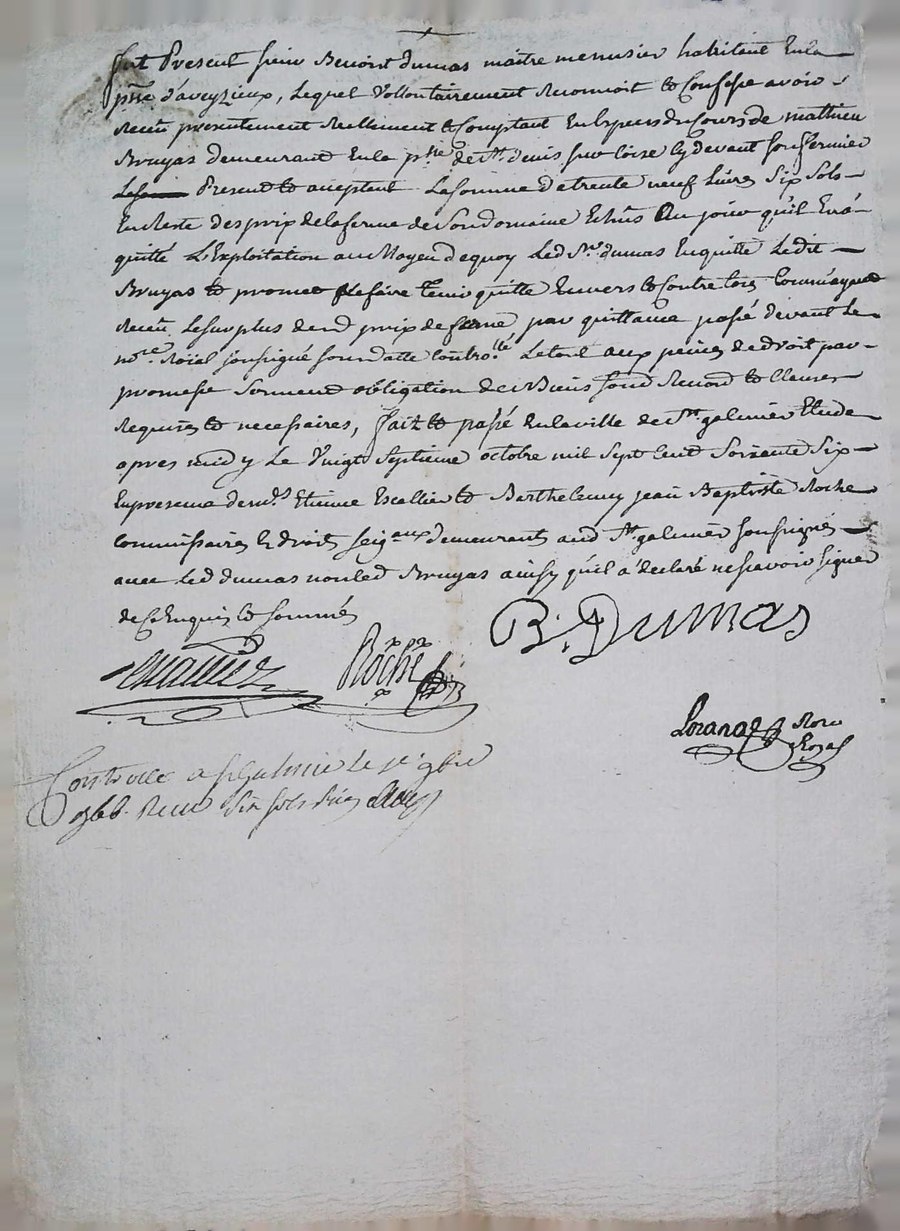 fut Present sieur Benoist dumas maitre menusier habitant En la
psse d'aveyzieux, Lequel Vollontairement Reconnoit & Confesse avoir
Receu presentement Reellement & Comptant En Espces du Cours de mathieu
Bruyas demeurant En la psse de St denis sur Coise Cy devant son fermier
Present & acceptant La somme de trente neuf Livres Six Sols
En Reste des prix de la ferme de Son domaine Echus Au jour qu'il En a
quitté L'Exploitation au Moyen de quoy Led Sr dumas En quitte Ledit
Bruyas & promet Le faire tenir quitte Envers & Contre tous
Receu Le surplus dud prix de ferme par quittance passé devant Le
nore Roïal soussigné sous datte Controllé Le tout aux peines de droit par
promesse Serment obligation de Biens fond Renond & Clauses
Requises & necessaires, fait & passé En la ville de St galmier Etude
apres midy Le Vingt Septieme octobre mil sept Cent Soixante Six
En presence de mrs Etienne Escallier & Barthelemy jean Baptiste Roche
Commissaires Es droits seigaux demeurants aud St galmier soussignés
avec Led dumas non Led Bruyas ainsy qu'il a declaré ne scavoir signer
de Ce Enquis & Sommés
B. Dumas
Roche
Lorange Nore Royal
Controllé a St Galmier Le 1er 9bre
1766. Receu Six sols Six